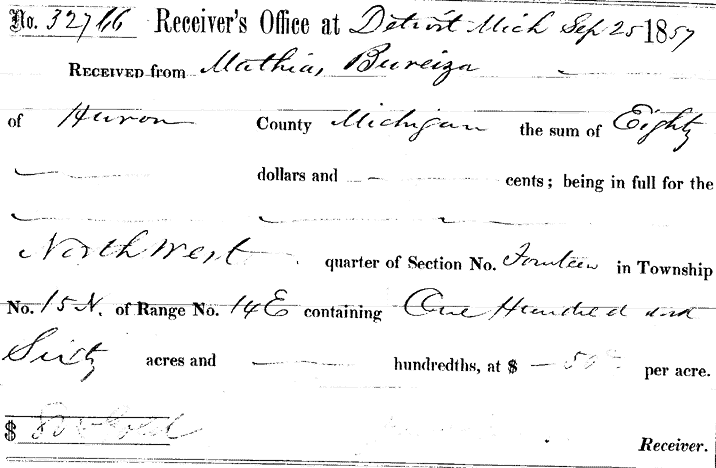 No. 32766 Receiver's Office at Detroit Mich Sep 25 1857
RECEIVED from Mathias Bureiza
of Huron County Michigan the sum of Eighty
dollars and cents; being in full for the
North West quarter of Section No. Fourteen in Township
No. 15 N. of Range No. 14 E containing One Hundred and
Sixty acres and hundredths, at $ 50 per acre.
$ Gold
Receiver.